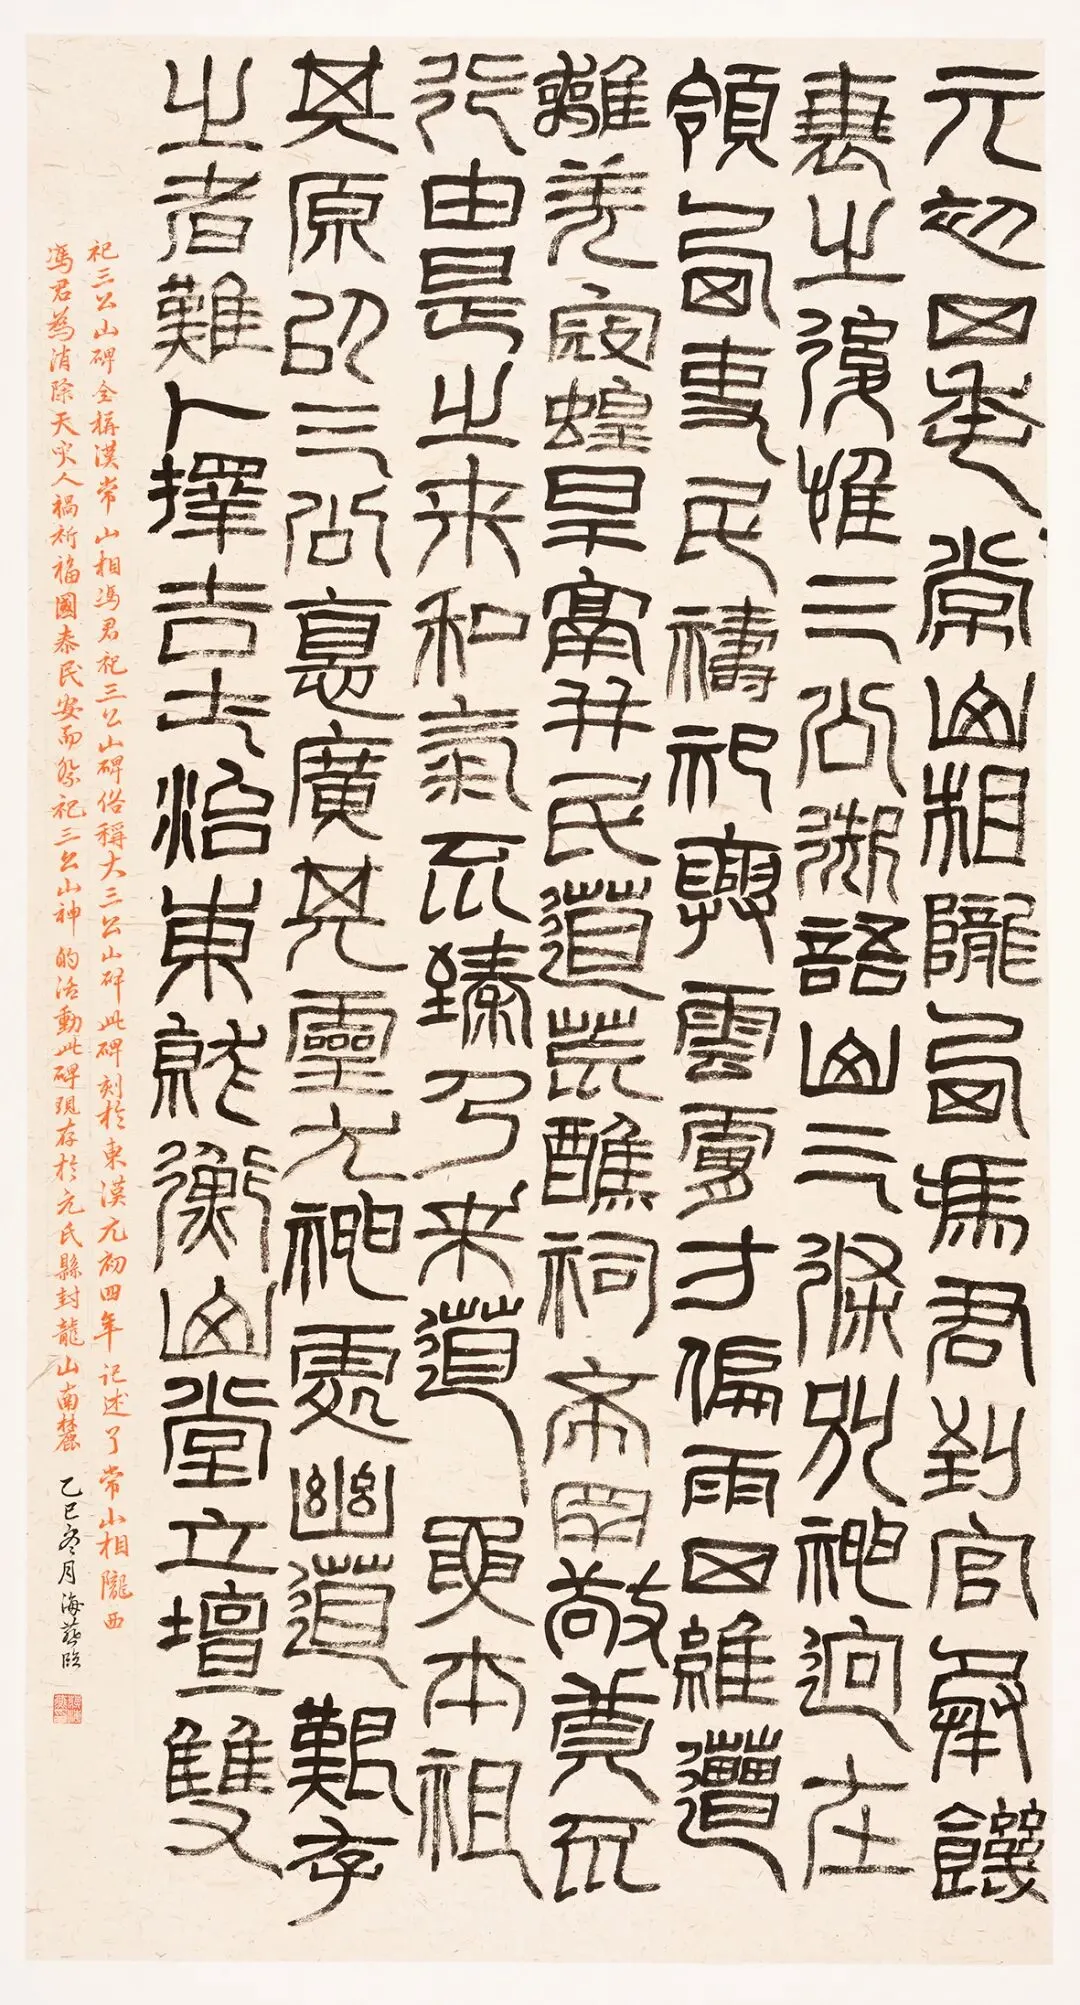 元初四年常山相隴西馮君到官承饑
衰之後惟三公御語山三條別神迥在
領西吏民禱祀興雲膚寸偏雨四維遭
離羌寇蝗旱鬲并民道荒醮祠希罕敬奠不
行由是之來和氣不臻乃來道要本祖
其原以三公惪廣其靈尤神處幽道艱存
之者難卜擇吉土治東就衡山堂立壇雙
祀三公山碑全稱漢常山相馮君祀三公山碑俗稱大三公山碑此碑刻於東漢元初四年記述了常山相隴西
馮君為消除天灾人禍祈福國泰民安而祭祀三公山神的活動此碑現存於元氏縣封龍山南麓 乙巳冬月海燕臨